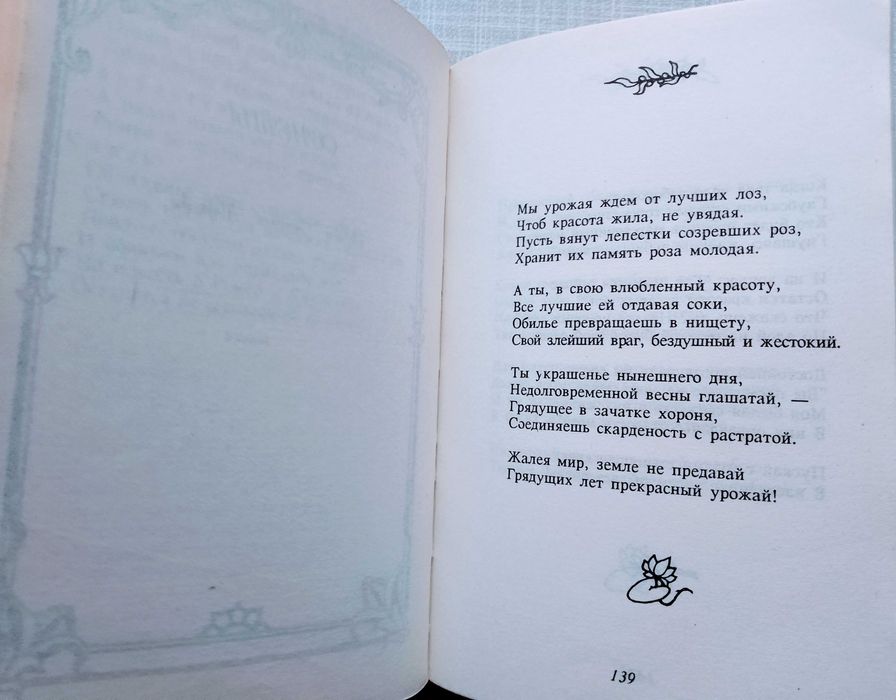 Мы урожая ждем от лучших лоз,
Чтоб красота жила, не увядая.
Пусть вянут лепестки созревших роз,
Хранит их память роза молодая.
А ты, в свою влюбленный красоту,
Все лучшие ей отдавая соки,
Обилье превращаешь в нищету,
Свой злейший враг, бездушный и жестокий.
Ты украшенье нынешнего дня,
Недолговременной весны глашатай, —
Грядущее в зачатке хороня,
Соединяешь скарденость с растратой.
Жалея мир, земле не предавай
Грядущих лет прекрасный урожай!
139